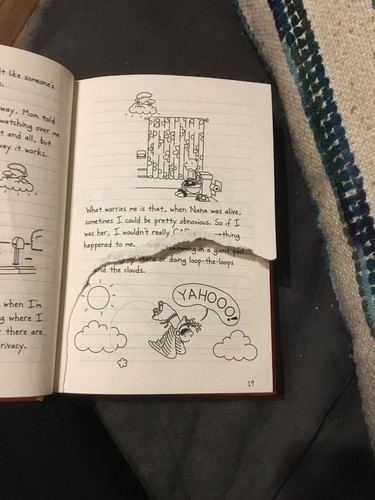 t like someone's
e.
way. Mom told
watching over me
t and all, but
way it works.
when I'm
g where I
t there are
rivacy.
What worries me is that, when Nana was alive,
sometimes I could be pretty obnoxious. So if I
was her, I wouldn't really thing
happened to me. swimming in a giant pool
or doing loop-the-loops
and the clouds.
YAHOOO!
19